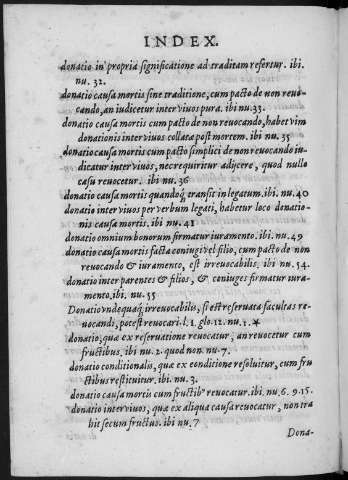 INDEX.
donatio in propria significatione ad traditam refertur. ibi.
nu. 32.
donatio causa mortis sine traditione, cum pacto de non revo-
cando, an iudicetur inter vivos pura. ibi nu. 33.
donatio causa mortis cum pacto de non revocando, habet vim
donationis inter vivos collata post mortem. ibi nu. 35
donatio causa mortis cum pacto simplici de non revocando iu-
dicatur inter vivos, nec requiritur adijcere, quod nullo
casu revocetur. ibi nu. 36
donatio causa mortis quandoq; transit in legatum. ibi. nu. 40
donatio inter vivos per verbum legati, habetur loco donatio-
nis causa mortis. ibi nu. 41
donatio omnium bonorum firmatur iuramento. ibi. nu. 49
donatio causa mortis facta coniugi vel filio, cum pacto de non
revocando & iuramento, est irrevocabilis. ibi nu. 54.
donatio inter parentes & filios, & coniuges firmatur iura-
mento. ibi nu. 55
Donatio undequaq; irrevocabilis, si est reservata facultas re-
vocandi, potest revocari. l. 1. glo. 12. nu. 1. *
donatio, quæ ex reservatione revocatur, an revocetur cum
fructibus. ibi nu. 2. quod non. nu. 7.
donatio conditionalis, quæ ex conditione resolvitur, cum fru
ctibus restituitur. ibi nu. 3.
donatio causa mortis cum fructibꝰ revocatur. ibi. nu. 6. 9. 15.
donatio inter vivos, quæ ex aliqua causa revocatur, non tra
hit secum fructus. ibi nu. 7
Dona-